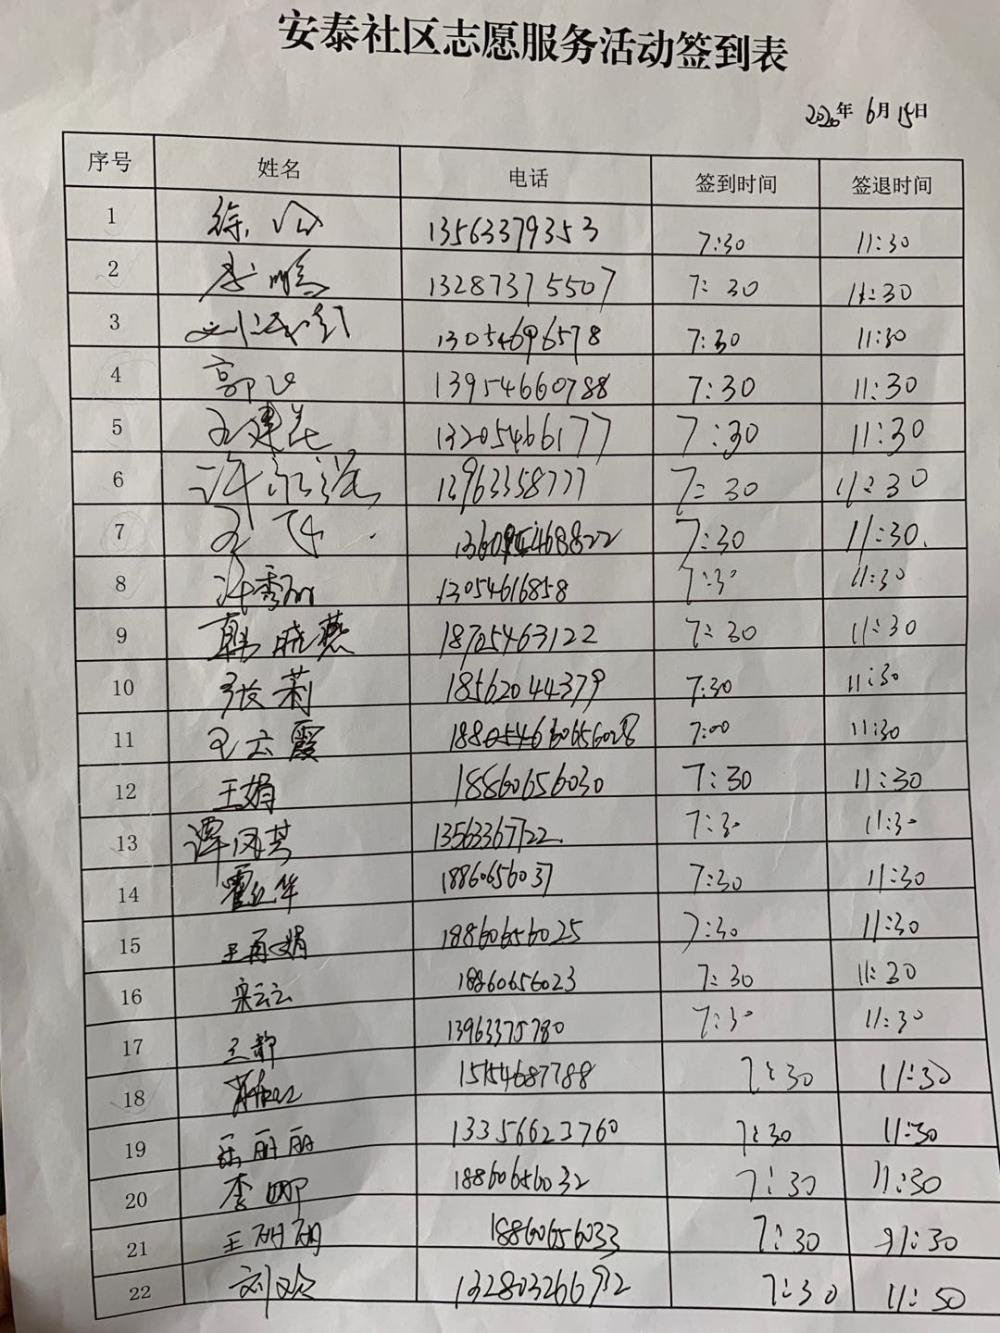 安泰社区志愿服务活动签到表
2020年 6月 15日
序号 姓名 电话 签到时间 签退时间
1 徐 13563379353 7:30 11:30
2 李鹏 13287375507 7:30 11:30
3 刘 13054696578 7:30 11:30
4 郭 13954660788 7:30 11:30
5 王建花 13205466177 7:30 11:30
6 许 13963358777 7:30 11:30
7 王飞 7:30 11:30
8 许秀丽 13054616858 7:30 11:30
9 韩晓燕 18705463122 7:30 11:30
10 张莉 18562044379 7:30 11:30
11 王云霞 7:00 11:30
12 王娟 18860656030 7:30 11:30
13 谭凤英 13563367722 7:30 11:30
14 霍 华 18860656037 7:30 11:30
15 王再娟 18860656025 7:30 11:30
16 宋云云 18860656023 7:30 11:30
17 王静 13963375780 7:30 11:30
18 15154687788 7:30 11:30
19 丽丽 13356623760 7:30 11:30
20 李娜 18860656032 7:30 11:30
21 王丽丽 18860656033 7:30 11:30
22 刘欢 13280326692 7:30 11:50